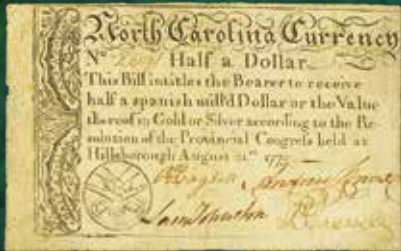 North Carolina Currency
No Half a Dollar
This Bill intitles the Bearer to receive
half a spanish mill'd Dollar or the Value
thereof in Gold or Silver according to the Re-
solution of the Provincial Congress held at
Hillsborough August 21st 1775
Sam Johnston